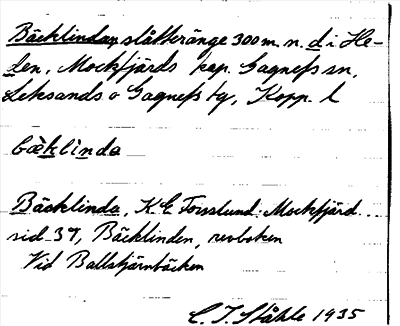 Bäcklindan, slåtteränge 300 m. n. d. i He-
den, Mockfjärds kap. Gagnefs sn,
Leksands o Gagnefs tg, Kopp. l
bäklinda
Bäcklinda, K. E. Forsslund: Mockfjärd
sid 37, Bäcklinden, revboken
Vid Ballstjärnbäcken
C. I. Ståhle 1935